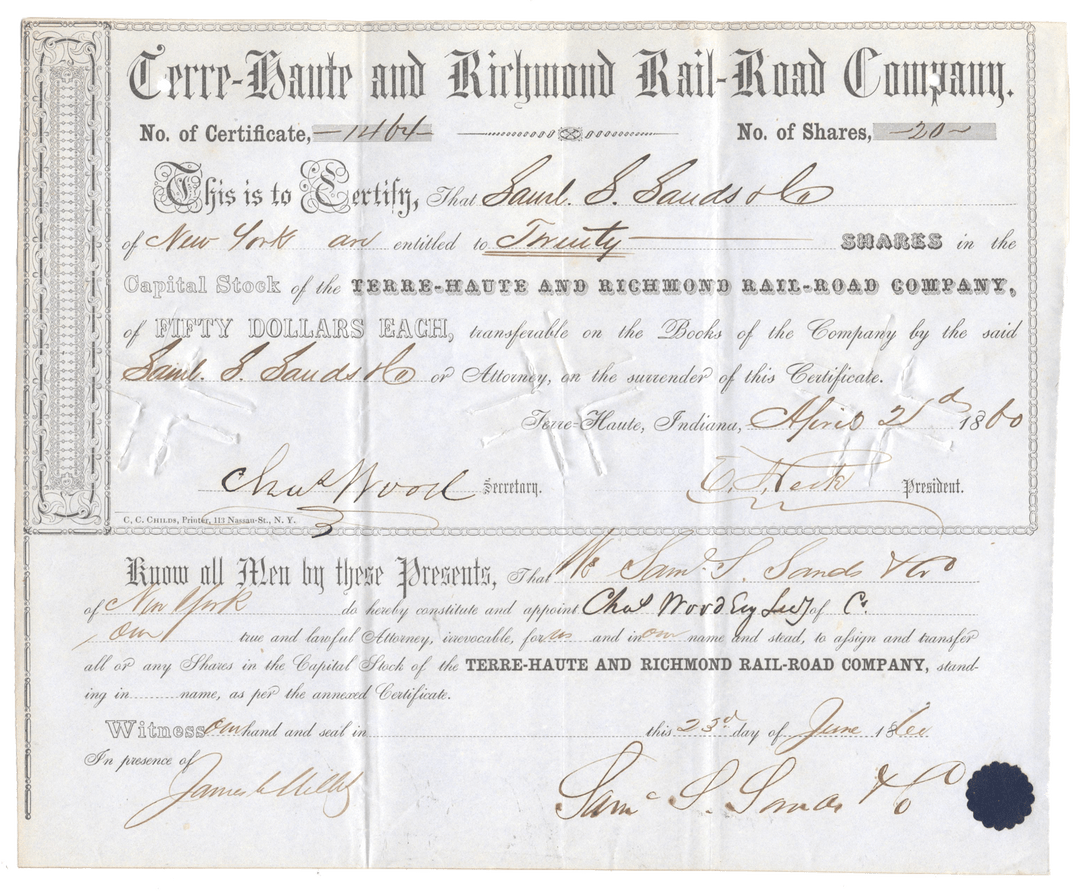 Terre-Haute and Richmond Rail-Road Company.
No. of Certificate, 1464 No. of Shares, 20
This is to Certify, That Saml. S. Sands & Co
of New York are entitled to Twenty SHARES in the
Capital Stock of the TERRE-HAUTE AND RICHMOND RAIL-ROAD COMPANY,
of FIFTY DOLLARS EACH, transferable on the Books of the Company by the said
Saml. S. Sands & Co or Attorney, on the surrender of this Certificate.
Terre-Haute, Indiana, April 2d 1860
Chas Wood Secretary. President.
C. C. CHILDS, Printer, 113 Nassau-St., N. Y.
Know all Men by these Presents, That We Saml S. Sands & Co
of New York do hereby constitute and appoint Chas Wood Esq Secy of Co
our true and lawful Attorney, irrevocable, for us and in our name and stead, to assign and transfer
all or any Shares in the Capital Stock of the TERRE-HAUTE AND RICHMOND RAIL-ROAD COMPANY, stand-
ing in name, as per the annexed Certificate.
Witness our hand and seal in this 23d day of June 1860
In presence of
James
Saml S. Sands & Co